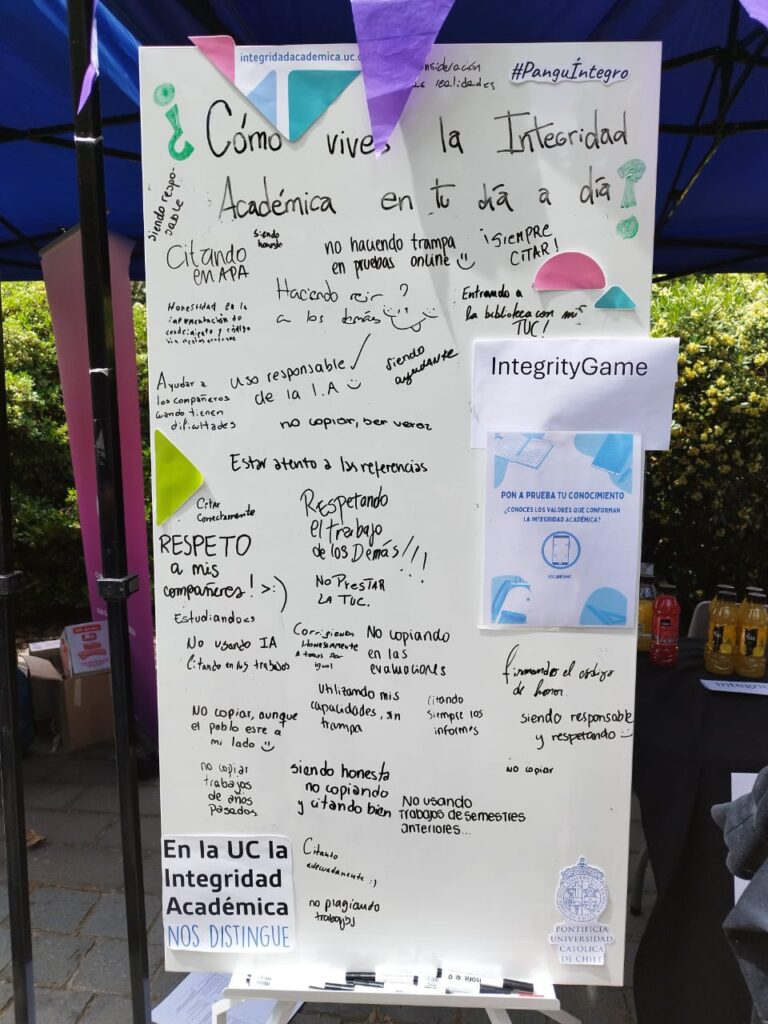 integridadacademica.uc.
realidades
#PanguÍntegro
¿Cómo vives la Integridad
Académica en tu día a día?
siendo respo-
sable
Citando
en APA
siendo
honesto
no haciendo trampa
en pruebas online
¡SIEMPRE
CITAR!
Honestidad en la
implementación de
conocimiento y código
Haciendo reir
a los demás
Entrando a
la biblioteca con mi
TUC!
IntegrityGame
Ayudar a
los compañeros
cuando tienen
dificultades
Uso responsable
de la I.A
siendo
ayudante
no copiar, ser veraz
Estar atento a las referencias
PON A PRUEBA TU CONOCIMIENTO
¿CONOCES LOS VALORES QUE CONFORMAN
LA INTEGRIDAD ACADÉMICA?
ESCANÉAME
Citar
Correctamente
Respetando
el trabajo
de los Demás!!!
RESPETO
a mis
compañeros! >:)
No PRESTAR
LA TUC.
Estudiando
No usando IA
Citando en los trabajos
Corrigiendo
Honestamente
A todos por
igual
No copiando
en las
evaluaciones
firmando el codigo
de honor.
No copiar, aunque
el pablo este a
mi lado
Utilizando mis
capacidades, sin
trampa
citando
siempre los
informes
siendo responsable
y respetando
no copiar
no copiar
trabajos
de años
pasados
siendo honesta
no copiando
y citando bien
No usando
trabajos de semestres
anteriores...
En la UC la
Integridad
Académica
NOS DISTINGUE
Citando
adecuadamente :)
no plagiando
trabajos
PONTIFICIA
UNIVERSIDAD
CATÓLICA
DE CHILE